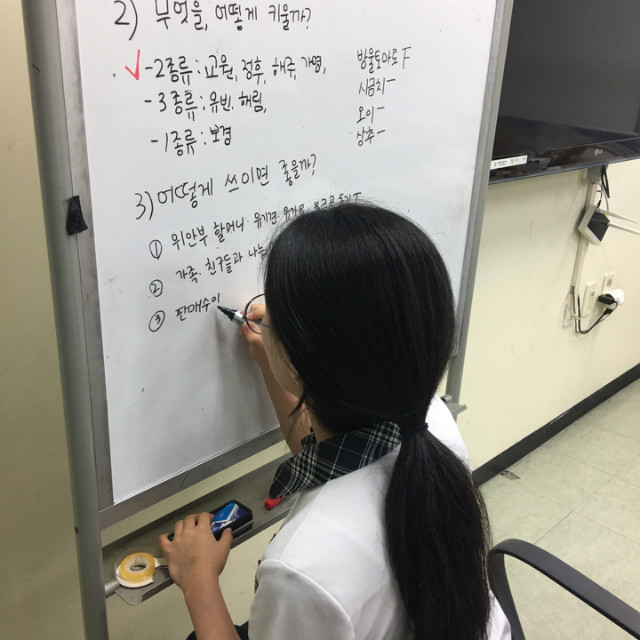 2) 무엇을, 어떻게 키울까?
-2종류 : 교원, 정후, 해주, 가영,
-3종류 : 유빈, 해림,
-1종류 : 보경
방울토마토
시금치
오이
상추
3) 어떻게 쓰이면 좋을까?
① 위안부 할머니
② 가족·친구들과
③ 판매수이